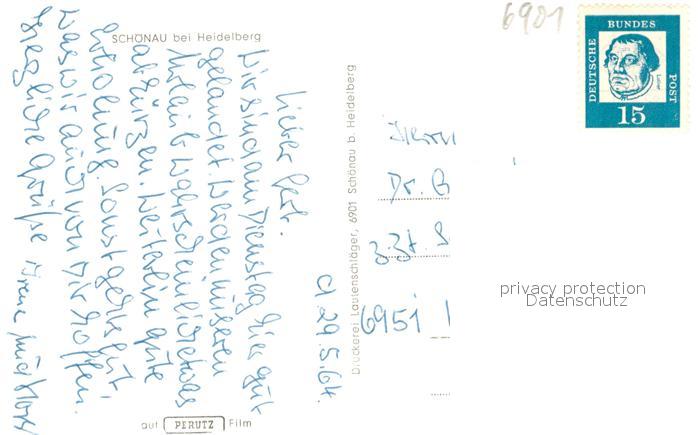 SCHÖNAU bei Heidelberg
6901
DEUTSCHE BUNDES POST
Luther
15
d 29.5.64.
Lieber Gert.
Wir sind am Dienstag hier gut
gelandet. Werden unseren
Urlaub wahrscheinlich etwas
abkürzen. Weiterhin gute
Erholung. Sonst geht's gut
was wir auch von Dir hoffen.
Herzliche Grüße
Druckerei Lautenschläger, 6901 Schönau b. Heidelberg
Herrn
Dr.
z.Zt.
6951
privacy protection
Datenschutz
auf PERUTZ Film